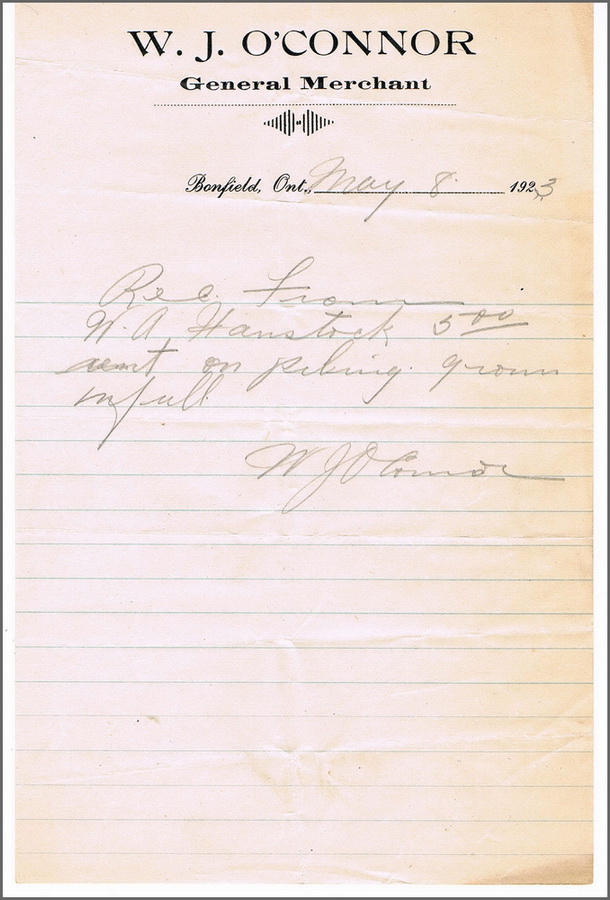 W. J. O'CONNOR
General Merchant
Bonfield, Ont., May 8 1923
Rec. From
W. A. Hanstock 5 00
on piling
in full
W J O Connor